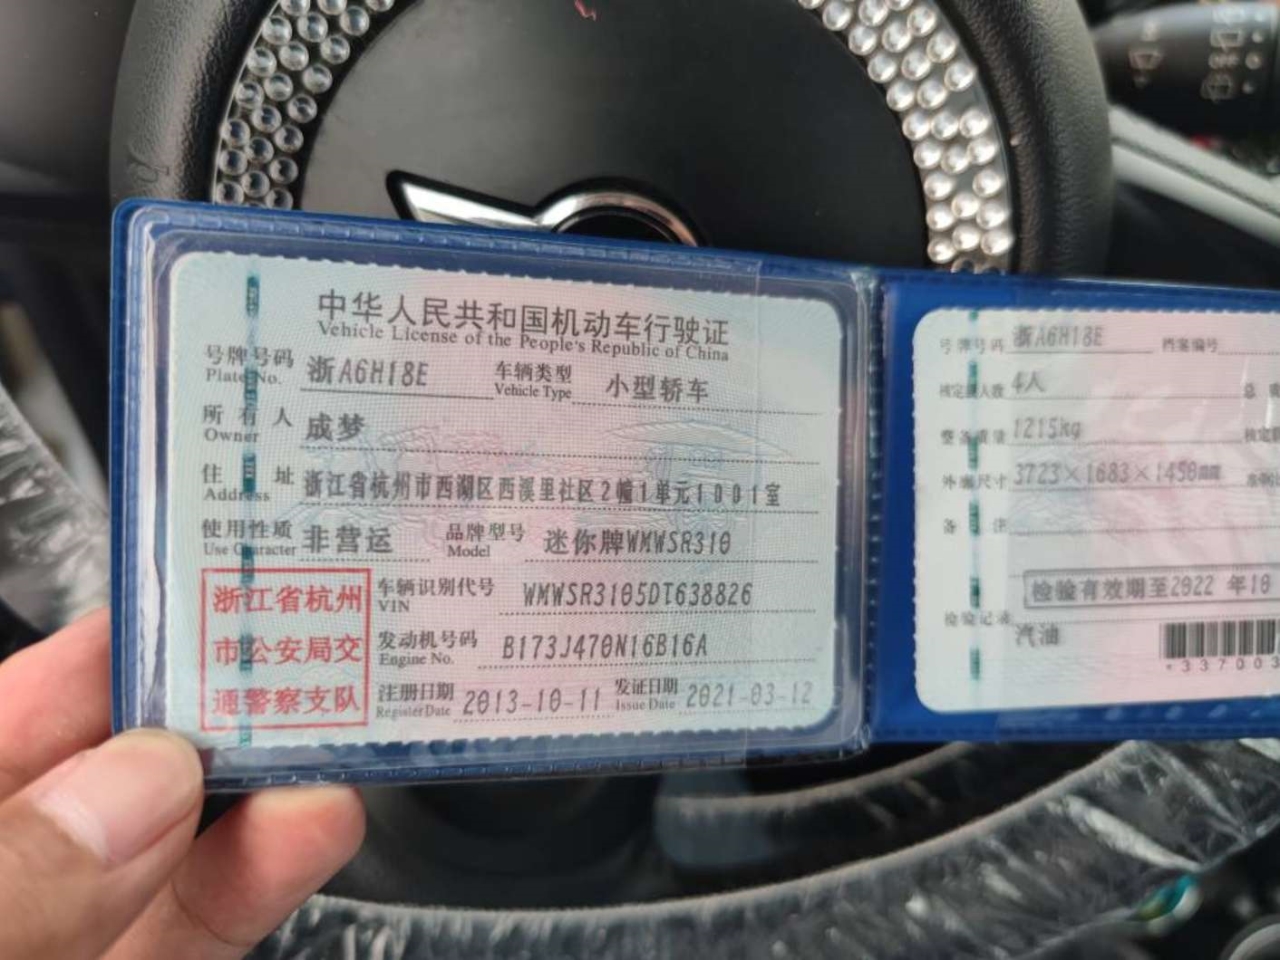 中华人民共和国机动车行驶证
Vehicle License of the People's Republic of China
号牌号码 浙A6H18E 车辆类型 小型轿车
Plate No. Vehicle Type
所有人 成梦
Owner
住址 浙江省杭州市西湖区西溪里社区2幢1单元1001室
Address
使用性质 非营运 品牌型号 迷你牌WMWSR310
Use Character Model
浙江省杭州
市公安局交
通警察支队
车辆识别代号 WMWSR3105DT638826
VIN
发动机号码 B173J470N16B16A
Engine No.
注册日期 2013-10-11 发证日期 2021-03-12
Register Date Issue Date
号牌号码 浙A6H18E 档案编号
核定载人数 4人 总
整备质量 1215kg 核定
外廓尺寸 3723×1683×1450mm 准牵
备注
检验有效期至2022 年10
检验记录
汽油
*337003
OFF